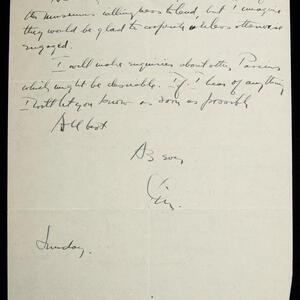 the museums willingness to lend, but I imagine
they would be glad to cooperate unless otherwise
engaged.
I will make enquiries about other
which might be desirable. If I hear of anything
I will let you know as soon as possible
All best
As ever
Sunday.